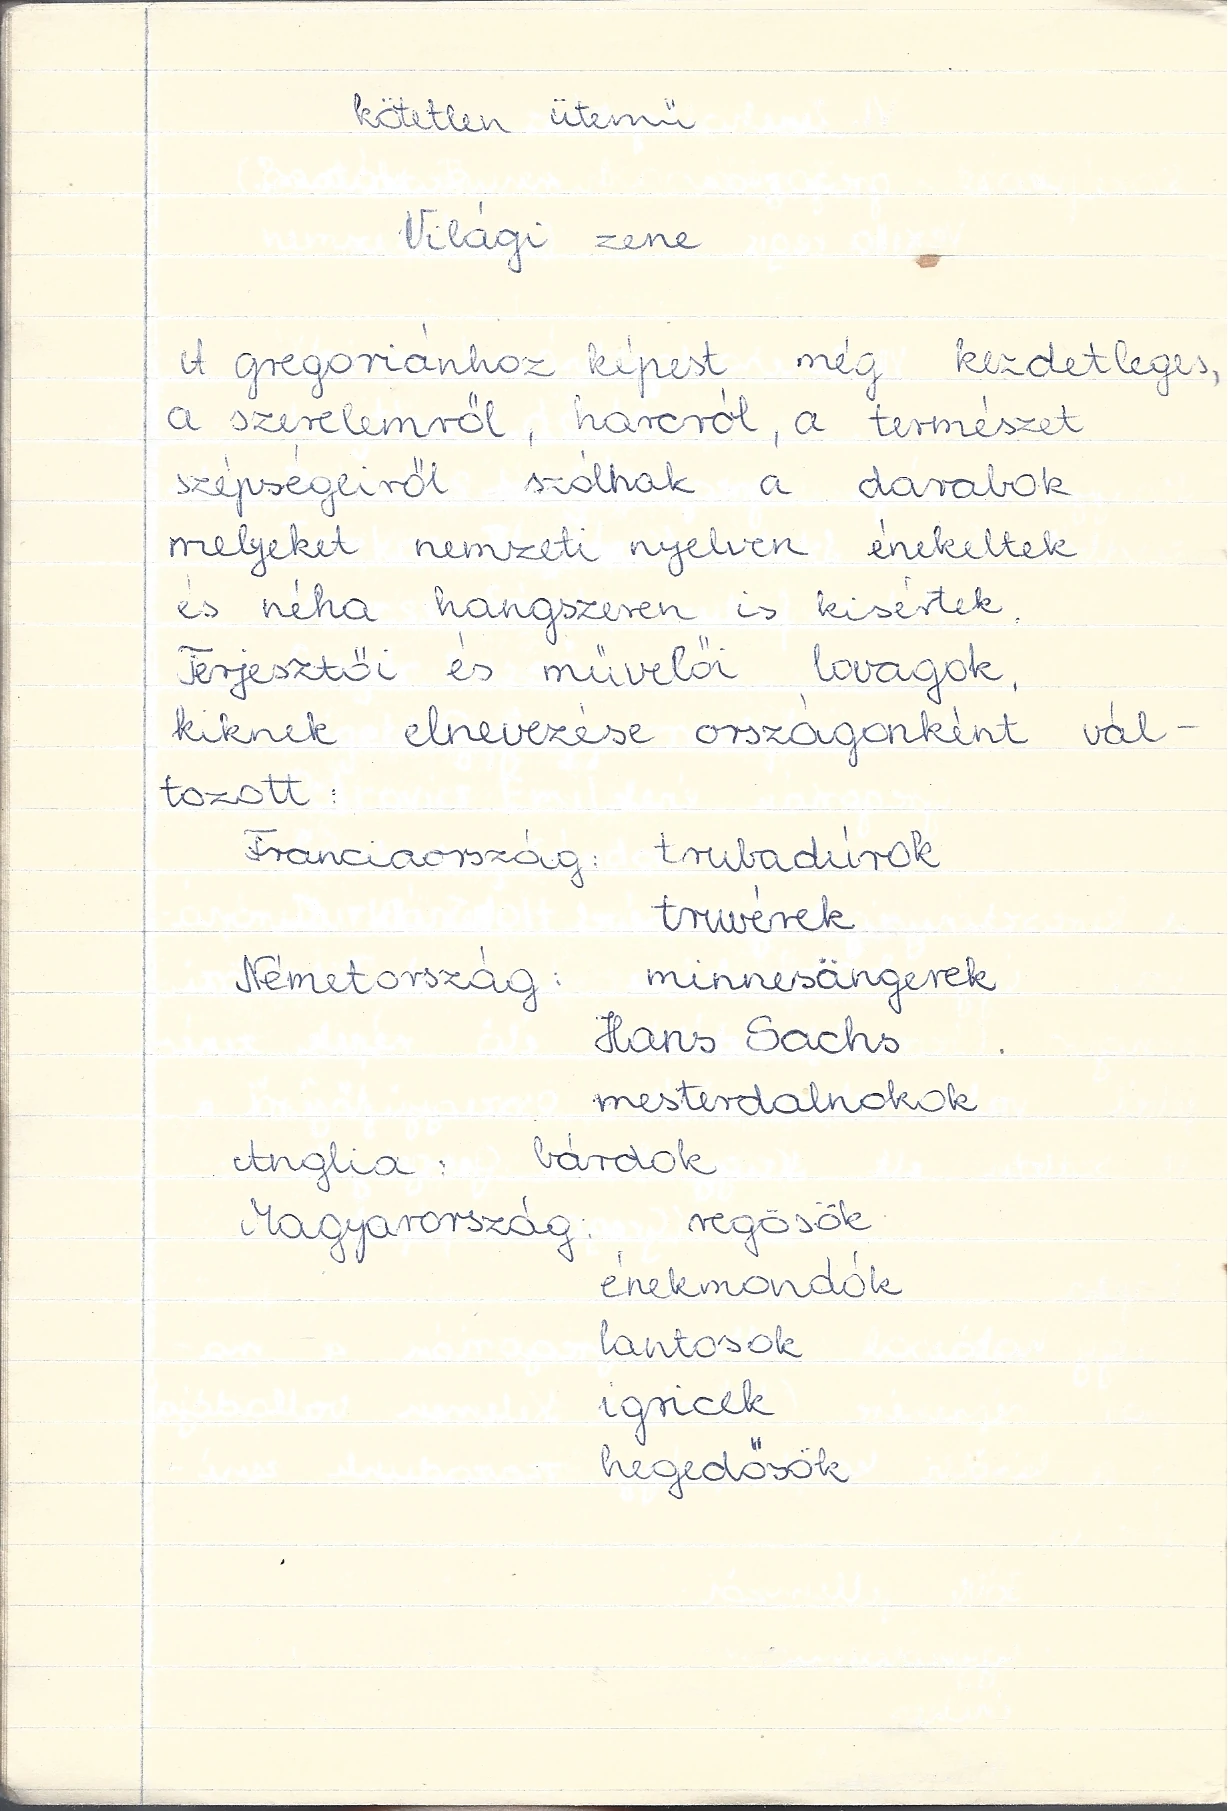 kötetlen ütemű
Világi zene
A gregoriánhoz képest még kezdetleges,
a szerelemről, harcról, a természet
szépségeiről szólnak a darabok
melyeket nemzeti nyelven énekeltek
és néha hangszeren is kisértek.
Terjesztői és művelői lovagok,
kiknek elnevezése országonként vál-
tozott:
Franciaország: trubadúrok
truvérek
Németország: minnesängerek
Hans Sachs
mesterdalnokok
Anglia: bárdok
Magyarország: regösök
énekmondók
lantosok
igricek
hegedősök